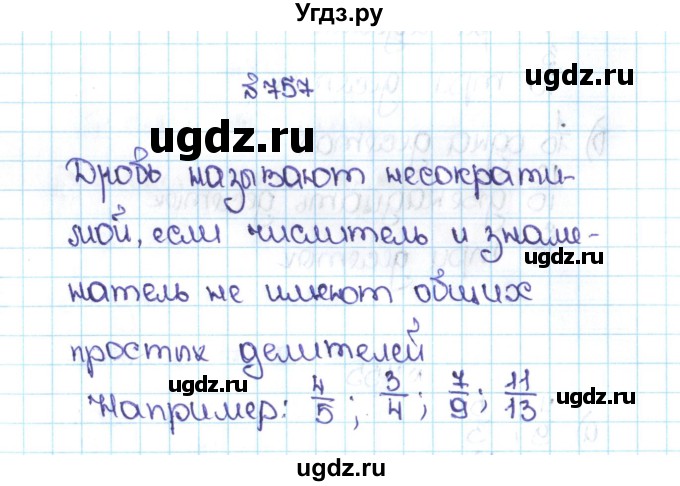 Угдз.ру
ugdz.ru
№757
ugdz.ru
ugdz.ru
Дробь называют несократи-
мой, если числитель и знаме-
ugdz.ru
натель не имеют общих
простых делителей
ugdz.ru
ugdz.ru
Например: 4/5; 3/4; 7/9; 11/13
ugdz.ru